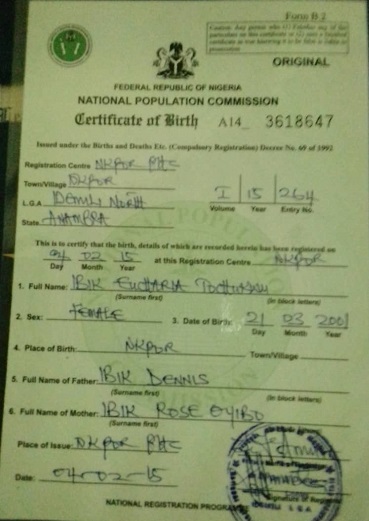 Form B 2
ORIGINAL
FEDERAL REPUBLIC OF NIGERIA
NATIONAL POPULATION COMMISSION
Certificate of Birth A14_ 3618647
Issued under the Births and Deaths Etc. (Compulsory Registration) Decree No. 69 of 1992
Registration Centre NKPOR PHC
Town/Village NKPOR
L.G.A IDEMILI NORTH
State ANAMBRA
I 15 264
Volume Year Entry No.
This is to certify that the birth, details of which are recorded herein has been registered on
04 02 15 at this Registration Centre NKPOR
Day Month Year
1. Full Name: IBIK EUCHARIA
(Surname first) (in block letters)
2. Sex: FEMALE 3. Date of Birth: 21 03 2001
Day Month Year
4. Place of Birth: NKPOR Town/Village
5. Full Name of Father: IBIK DENNIS
(Surname first) (in block letters)
6. Full Name of Mother: IBIK ROSE OYIBO
(Surname first)
Place of Issue: NKPOR PHC
Date: 04-02-15
NATIONAL REGISTRATION